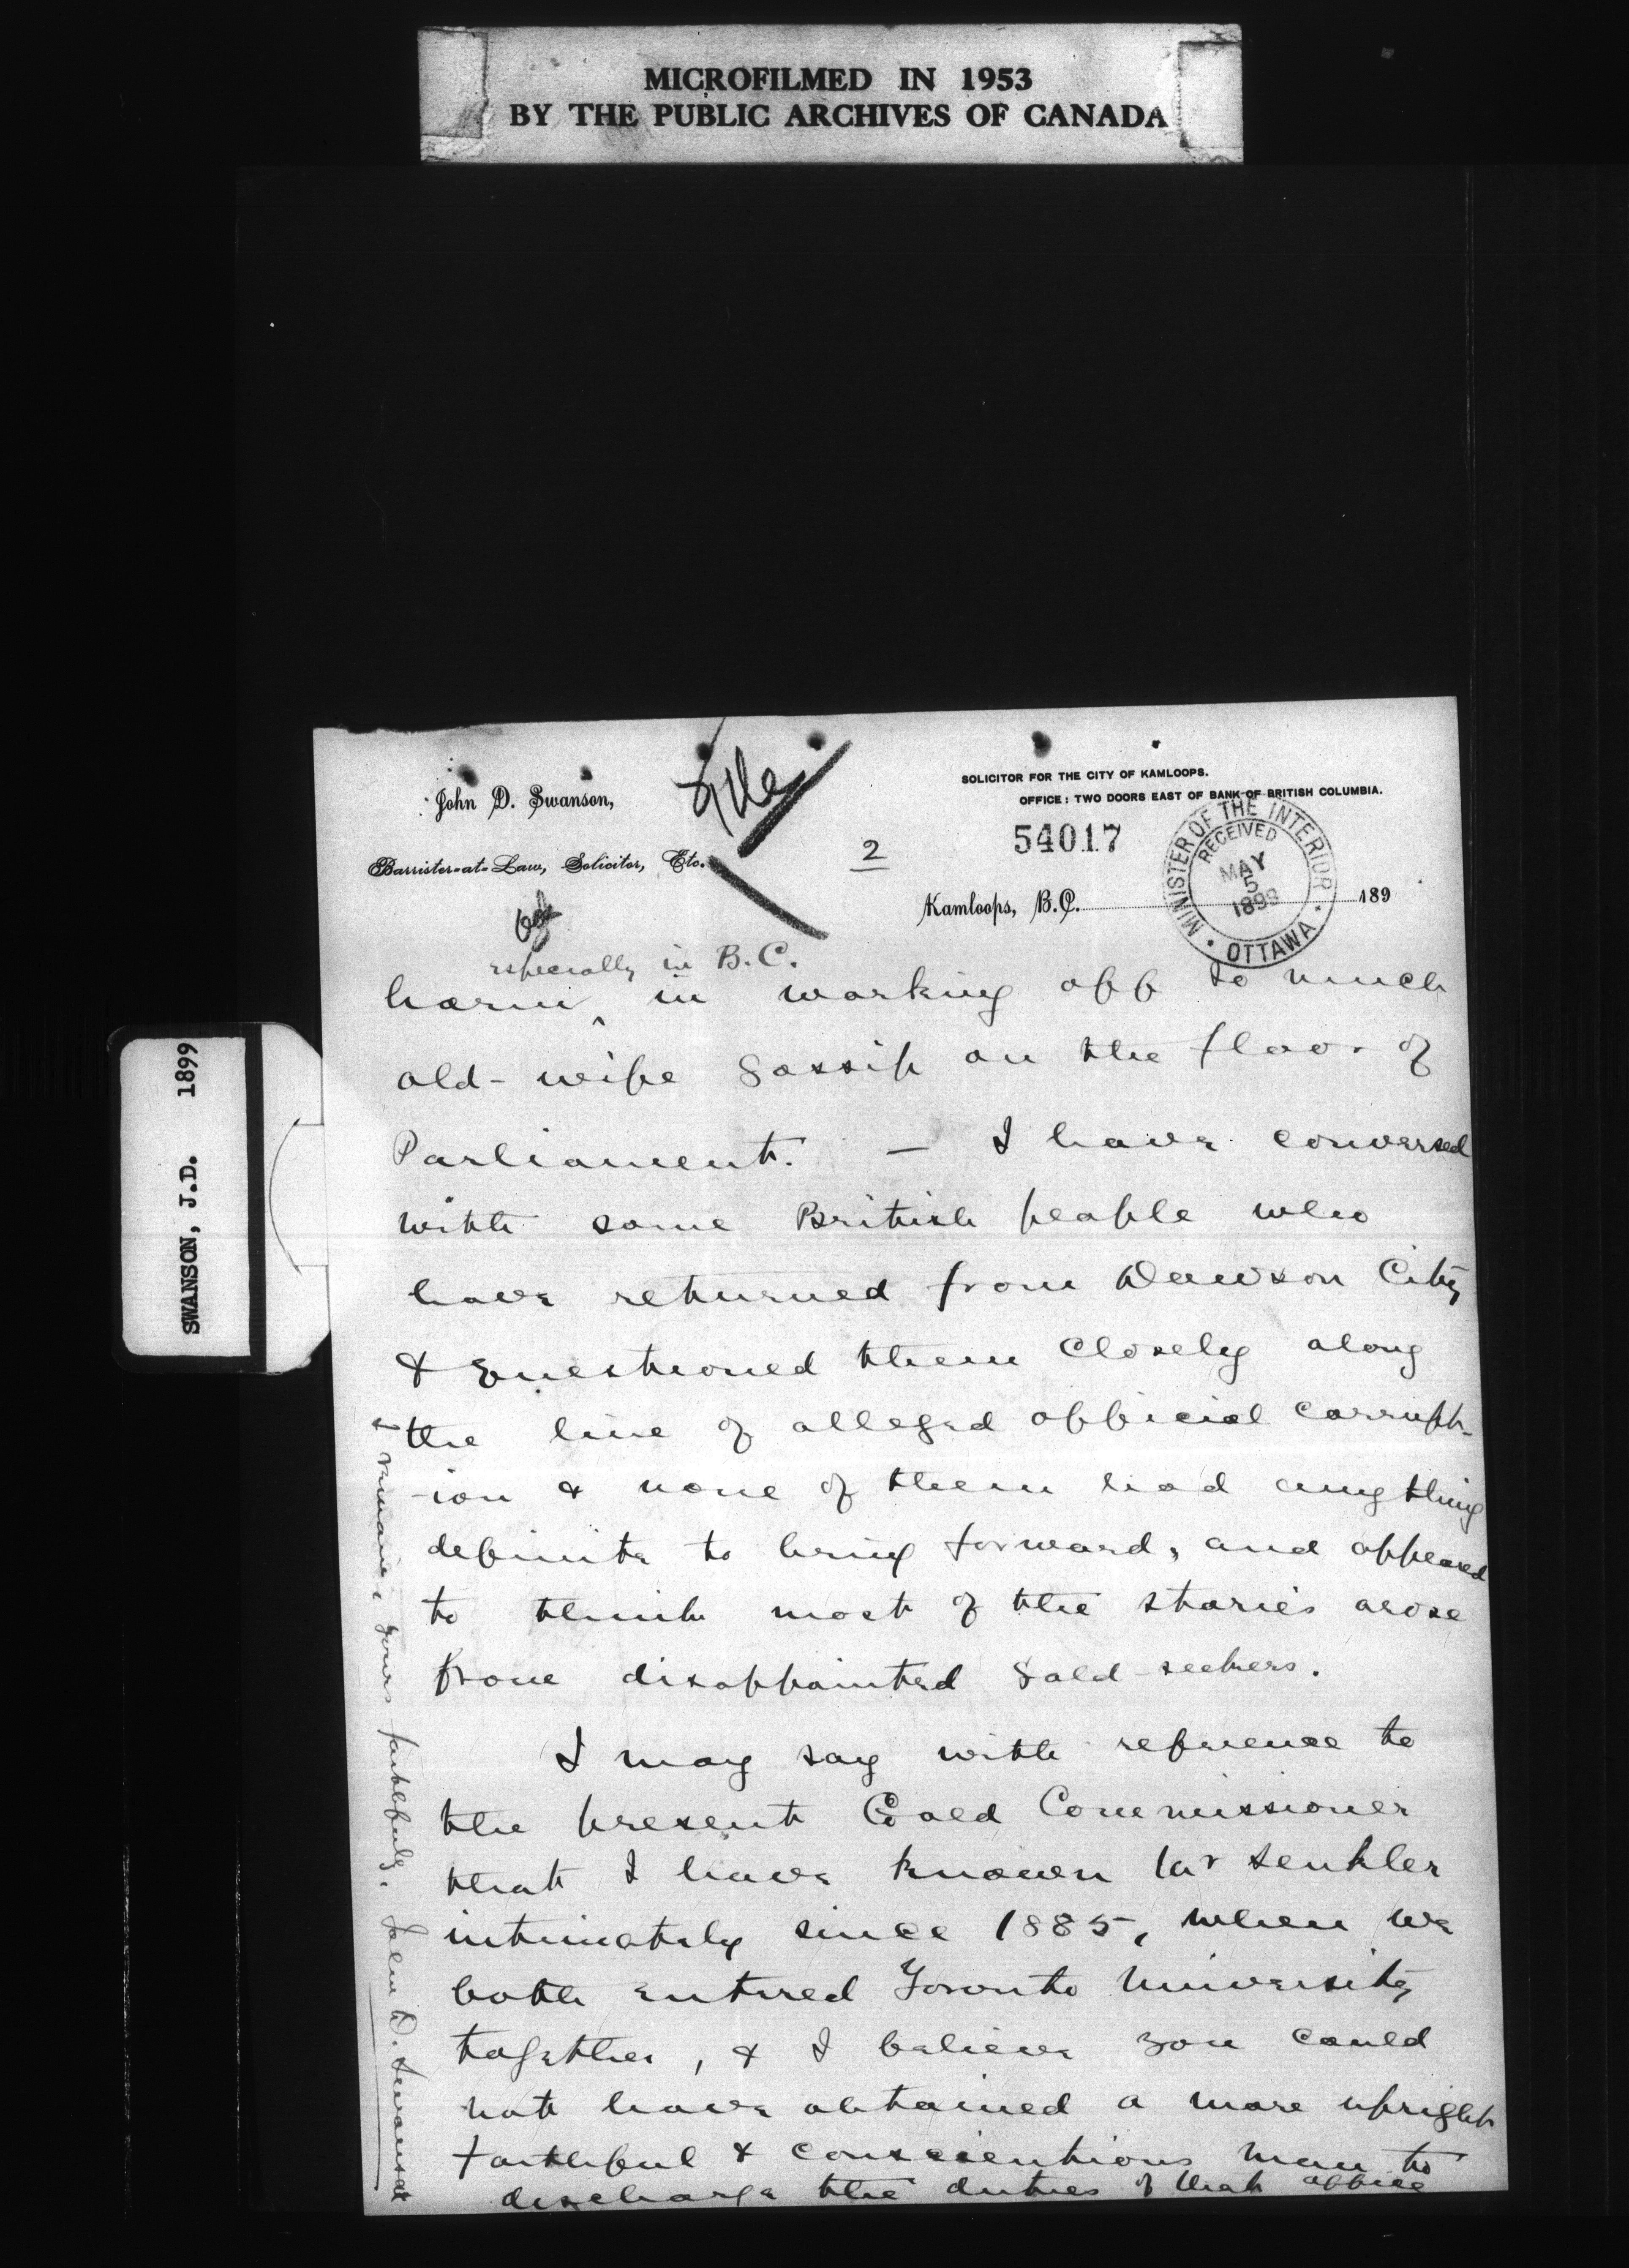 MICROFILMED IN 1953
BY THE PUBLIC ARCHIVES OF CANADA
SWANSON, J.D. 1899
John D. Swanson,
Barrister-at-Law, Solicitor, Etc.
File
2
SOLICITOR FOR THE CITY OF KAMLOOPS.
OFFICE: TWO DOORS EAST OF BANK OF BRITISH COLUMBIA.
54017
MINISTER OF THE INTERIOR
RECEIVED
MAY
5
1899
OTTAWA
Kamloops, B.C. 189
especially in B.C.
harm ^ in working off so much
old-wife gossip on the floor of
Parliament. — I have conversed
with some British people who
have returned from Dawson City
& questioned them closely along
the line of alleged official corrupt-
-ion & none of them had anything
definite to bring forward, and appeared
to think most of the stories arose
from disappointed gold-seekers.
I may say with reference to
the present Gold Commissioner
that I have known Mr Senkler
intimately since 1885, when we
both entered Toronto University
together, & I believe you could
not have obtained a more upright
faithful & conscientious man to
discharge the duties of that office
& remain, yours faithfully. John D. Swanson